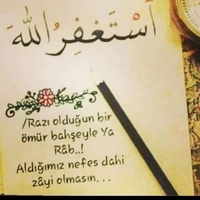 أَسْتَغْفِرُ اللهَ
/Razı olduğun bir
ömür bahşeyle Ya
Râb..!
Aldığımız nefes dahi
zâyi olmasın. . .